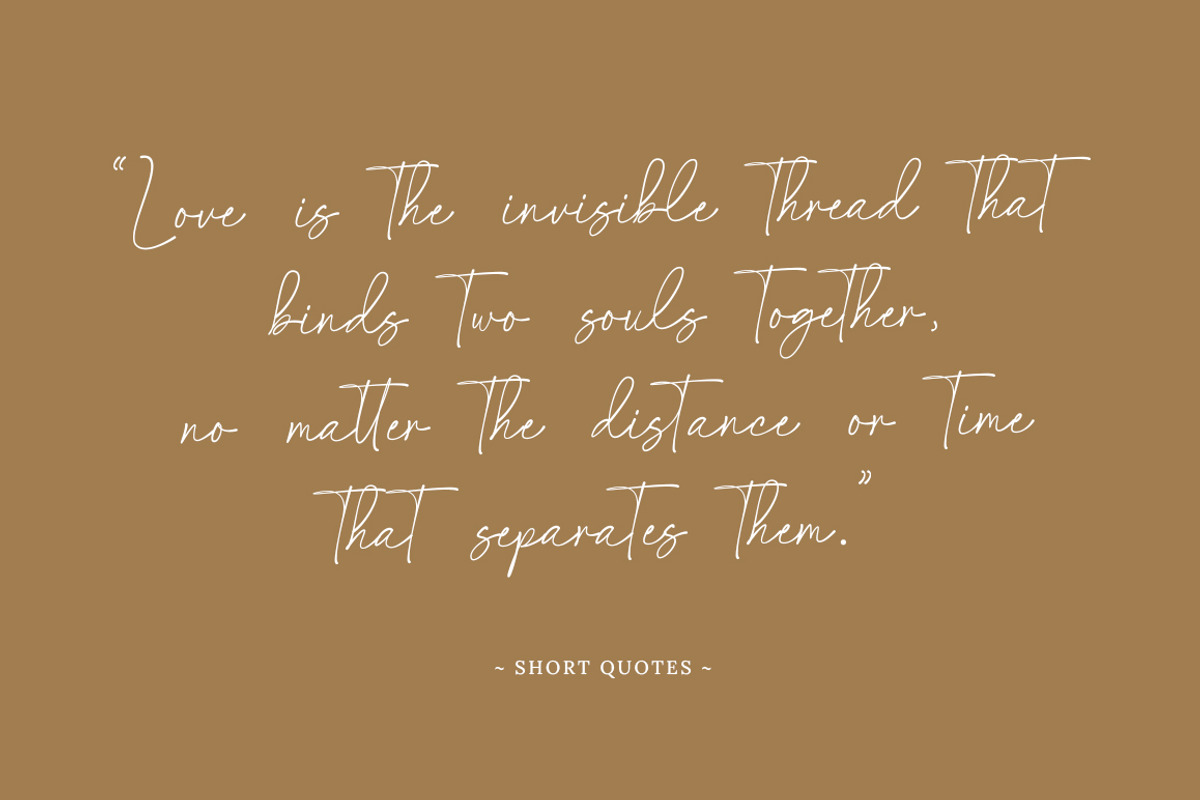 “Love is the invisible thread that
binds two souls together,
no matter the distance or time
that separates them.”
~ SHORT QUOTES ~